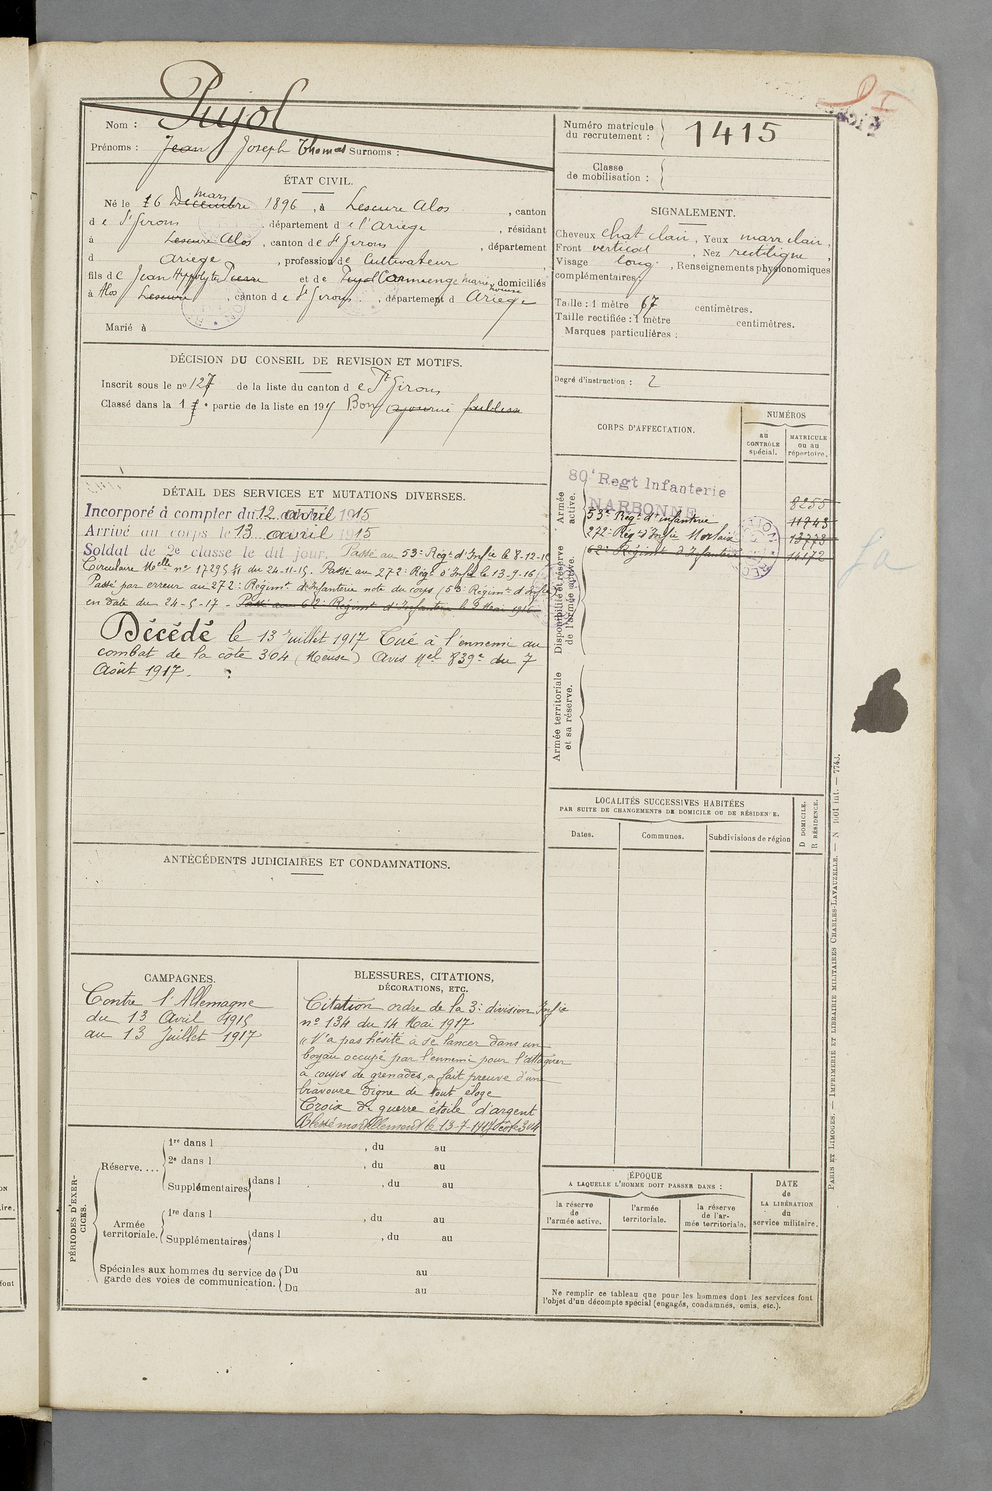 Pujol
Nom :
Prénoms : Jean Joseph Thomas Surnoms :
ÉTAT CIVIL.
mars
Né le 16 Décembre 1896, à Lescure Alos, canton
de St Girons, département de l'Ariège, résidant
à Lescure Alos, canton de St Girons, département
d Ariège, profession de Cultivateur
fils de Jean Hippolyte Pierre et de Pujol Marie domiciliés
à Alos Lescure, canton de St Girons, département d Ariège
Marié à
DÉCISION DU CONSEIL DE REVISION ET MOTIFS.
Inscrit sous le no 127 de la liste du canton de St Girons
Classé dans la 1e partie de la liste en 191 Bon ajourné faiblesse
DÉTAIL DES SERVICES ET MUTATIONS DIVERSES.
Incorporé à compter du 12 avril 1915
Arrivé au corps le 13 avril 1915
Soldat de 2e classe le dit jour. Passé au 53e Régt d'Infie le 8-12-1
Circulaire Melle no 17295 du 24-11-15. Passé au 272e Régt d'Infie le 13-9-16
Passé par erreur au 272e Régimt d'Infanterie note du corps (53e Régimt d'Infie)
en date du 24-5-17 - Passé au 62e Régimt d'Infanterie le 2 Mai 1916
Décédé le 13 Juillet 1917 Tué à l'ennemi au
combat de la côte 304 (Meuse) Avis Mel 839e du 7
Août 1917.
ANTÉCÉDENTS JUDICIAIRES ET CONDAMNATIONS.
CAMPAGNES.
Contre l'Allemagne
du 13 Avril 1915
au 13 Juillet 1917
BLESSURES, CITATIONS,
DÉCORATIONS, ETC.
Citation ordre de la 3e division Infie
no 134 du 14 Mai 1917
"N'a pas hésité à se lancer dans un
boyau occupé par l'ennemi pour l'attaquer
à coups de grenades, a fait preuve d'une
bravoure digne de tout éloge
Croix de guerre étoile d'argent
Blessé mortellement le 13-7-1917 côte 304
PÉRIODES D'EXERCICES.
Réserve....
1re dans l , du au
2e dans l , du au
Supplémentaires dans l , du au
Armée territoriale.
1re dans l , du au
Supplémentaires dans l , du au
Spéciales aux hommes du service de
garde des voies de communication.
Du au
Du au
Numéro matricule
du recrutement : 1415
Classe
de mobilisation :
SIGNALEMENT.
Cheveux chat clair, Yeux marr clair,
Front vertical, Nez rectiligne,
Visage long, Renseignements physionomiques
complémentaires:
Taille : 1 mètre 67 centimètres.
Taille rectifiée : 1 mètre centimètres.
Marques particulières :
Degré d'instruction : 2
CORPS D'AFFECTATION.
NUMÉROS
au
CONTRÔLE
spécial.
MATRICULE
ou au
répertoire.
Armée
active.
80e Regt Infanterie
NARBONNE 8255
53e Régt d'infanterie 11843
272e Rég d'Infie Morlaix 13773
62e Régiment d'Infanterie 14172
Disponibilité et réserve
de l'armée active.
Armée territoriale
et sa réserve.
LOCALITÉS SUCCESSIVES HABITÉES
PAR SUITE DE CHANGEMENTS DE DOMICILE OU DE RÉSIDENCE.
Dates.
Communes.
Subdivisions de région
D DOMICILE.
R RÉSIDENCE.
ÉPOQUE
A LAQUELLE L'HOMME DOIT PASSER DANS :
la réserve
de
l'armée active.
l'armée
territoriale.
la réserve
de l'ar-
mée territoriale.
DATE
de
LA LIBÉRATION
du
service militaire.
Ne remplir ce tableau que pour les hommes dont les services font
l'objet d'un décompte spécial (engagés, condamnés, omis, etc.).
PARIS ET LIMOGES. — IMPRIMERIE ET LIBRAIRIE MILITAIRES CHARLES-LAVAUZELLE. — N 1001 int. — 7743.